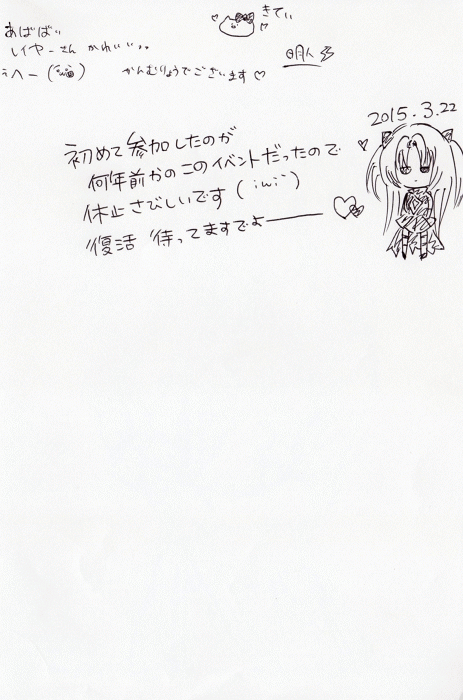 きてぃ
あばばい
レイヤーさん かわいい、、
かんむりょうでございます♡
2015.3.22
初めて参加したのが
何年前かのこのイベントだったので
休止さびしいです(;ω;`)
復活 待ってますでよ――